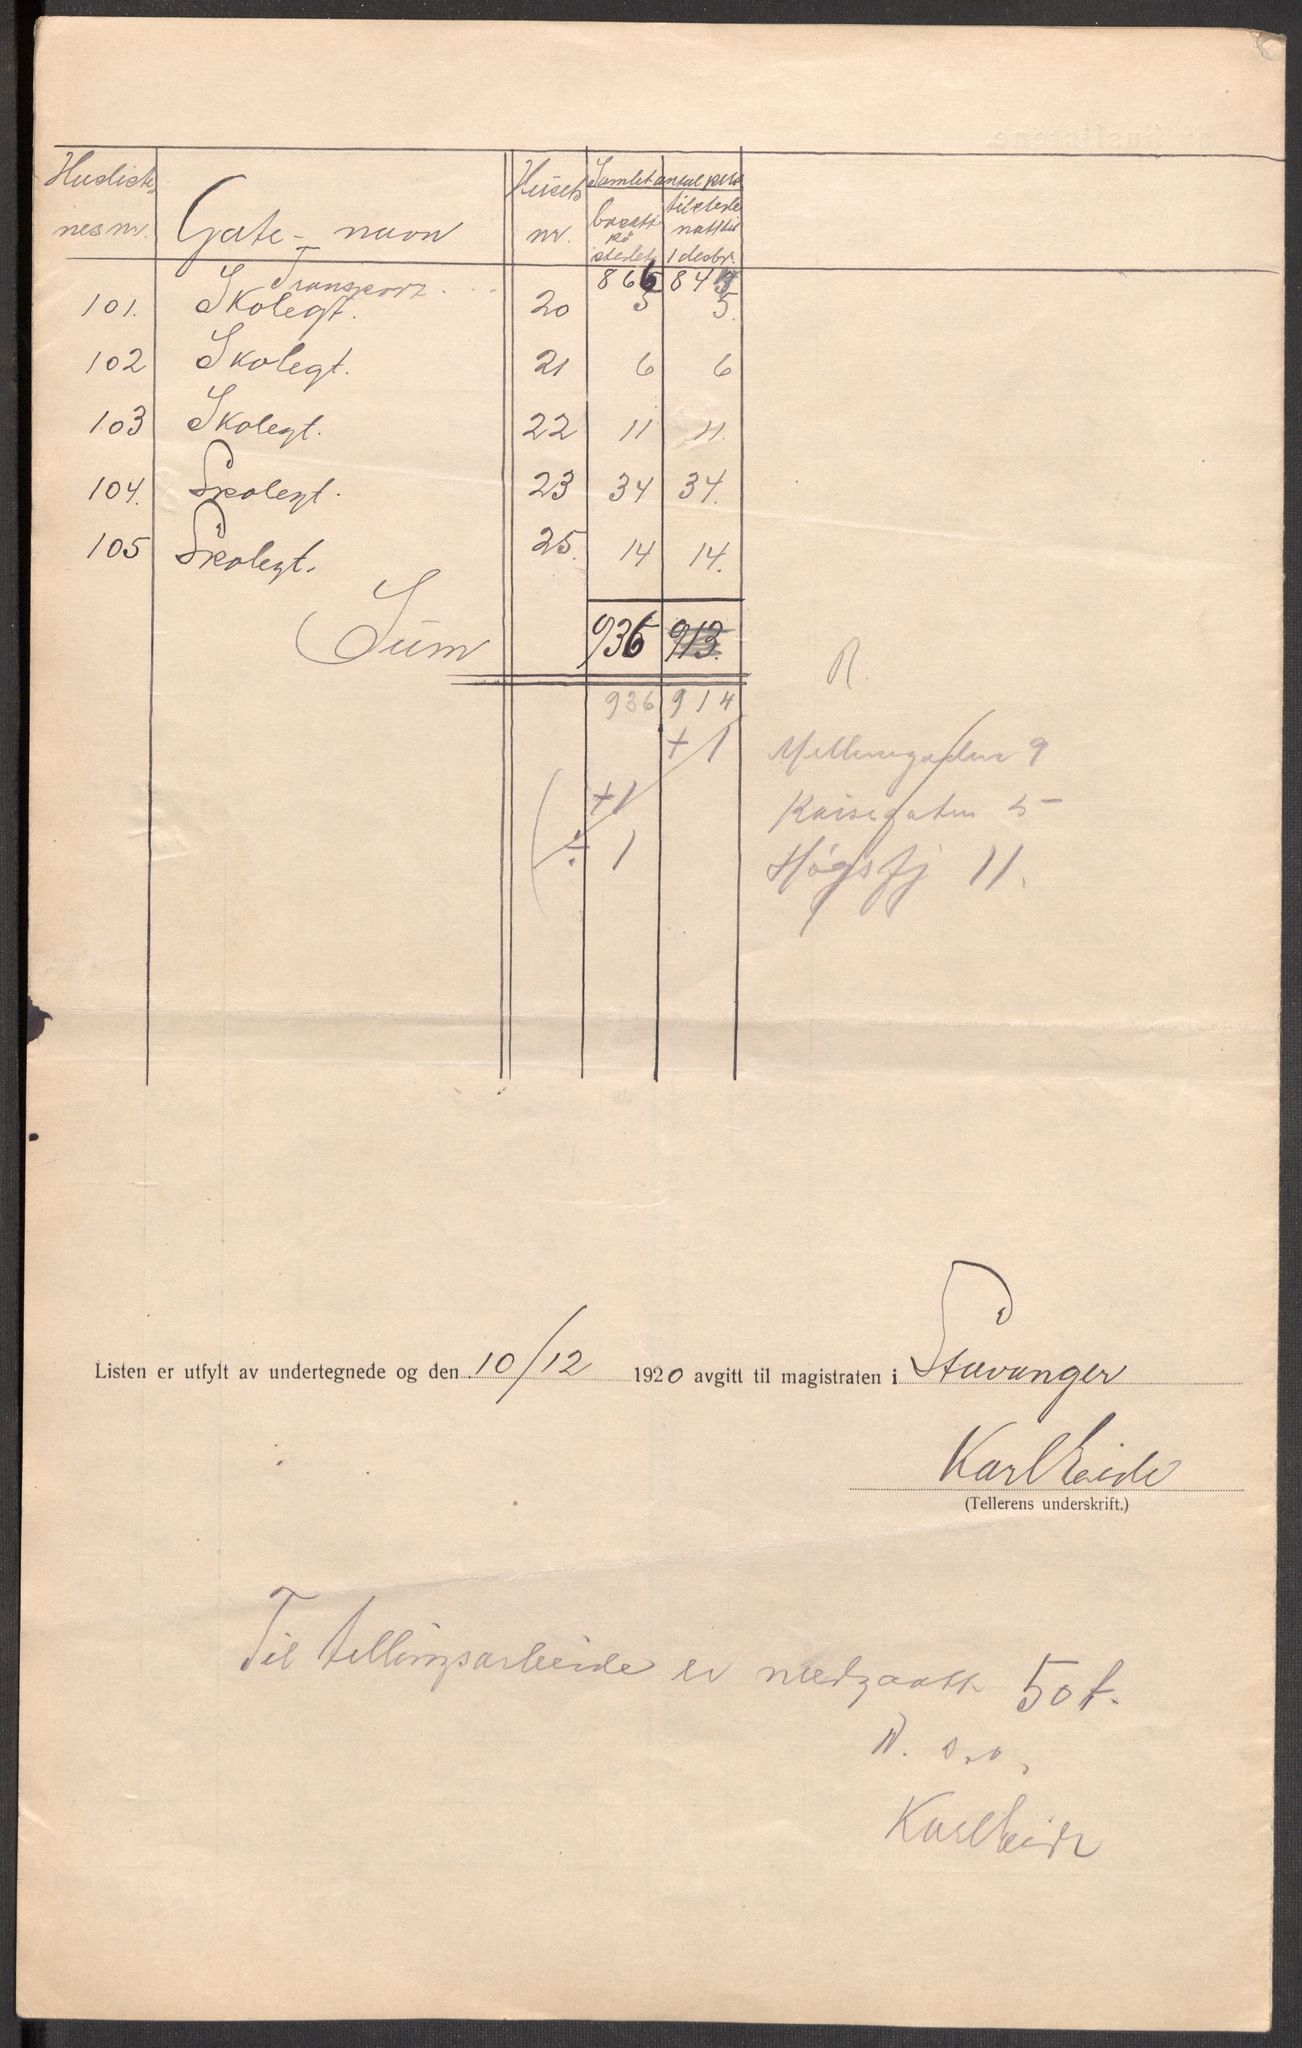 Huslist- Husets Samlet antal pers.
nes nr. Gate-navn nr. bosatt på stedet tilstede natt til 1 desbr.
Transport . . . 866 843
101. Skolegt. 20 5 5.
102 Skolegt. 21 6 6
103 Skolegt. 22 11 11.
104. Skolegt. 23 34 34.
105 Skolegt. 25. 14 14.
Sum 936 913.
936 914
R.
+ 1 Møllergaden 9
+ 1 Kaisegaten 5
÷ 1 Høgsfj 11.
Listen er utfylt av undertegnede og den 10/12 1920 avgitt til magistraten i Stavanger
Karl Eide
(Tellerens underskrift.)
Til tellingsarbeide er medgaatt 50 t.
D. s. o.
Karl Eide